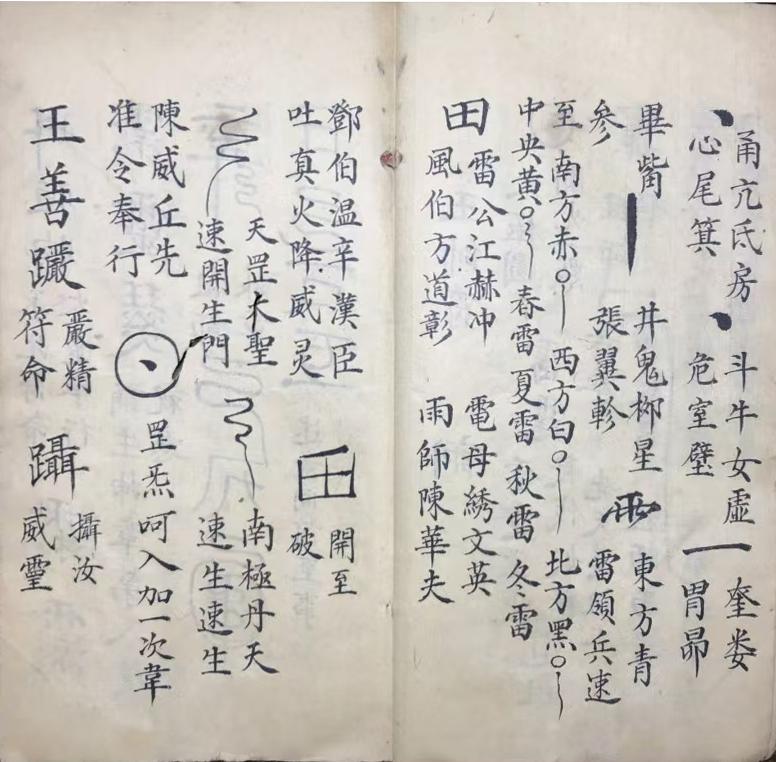 甬亢氐房 斗牛女虛 奎娄
心尾箕 危室壁 一 胃昴
畢觜 井鬼柳星 雨 東方青
参 張翼軫 雷領兵速
至 南方赤 西方白 北方黑
中央黄 春雷 夏雷 秋雷 冬雷
田 雷公江赫冲 電母綉文英
風伯方道彰 雨師陳華夫
鄧伯温辛漢臣 開至
吐真火降威灵 田 破
天罡木聖 南極丹天
速開生門 速生速生
陳威丘先
准令奉行
罡炁呵入加一次韋
王善 嚴精 攝汝
符命 躡 威靈